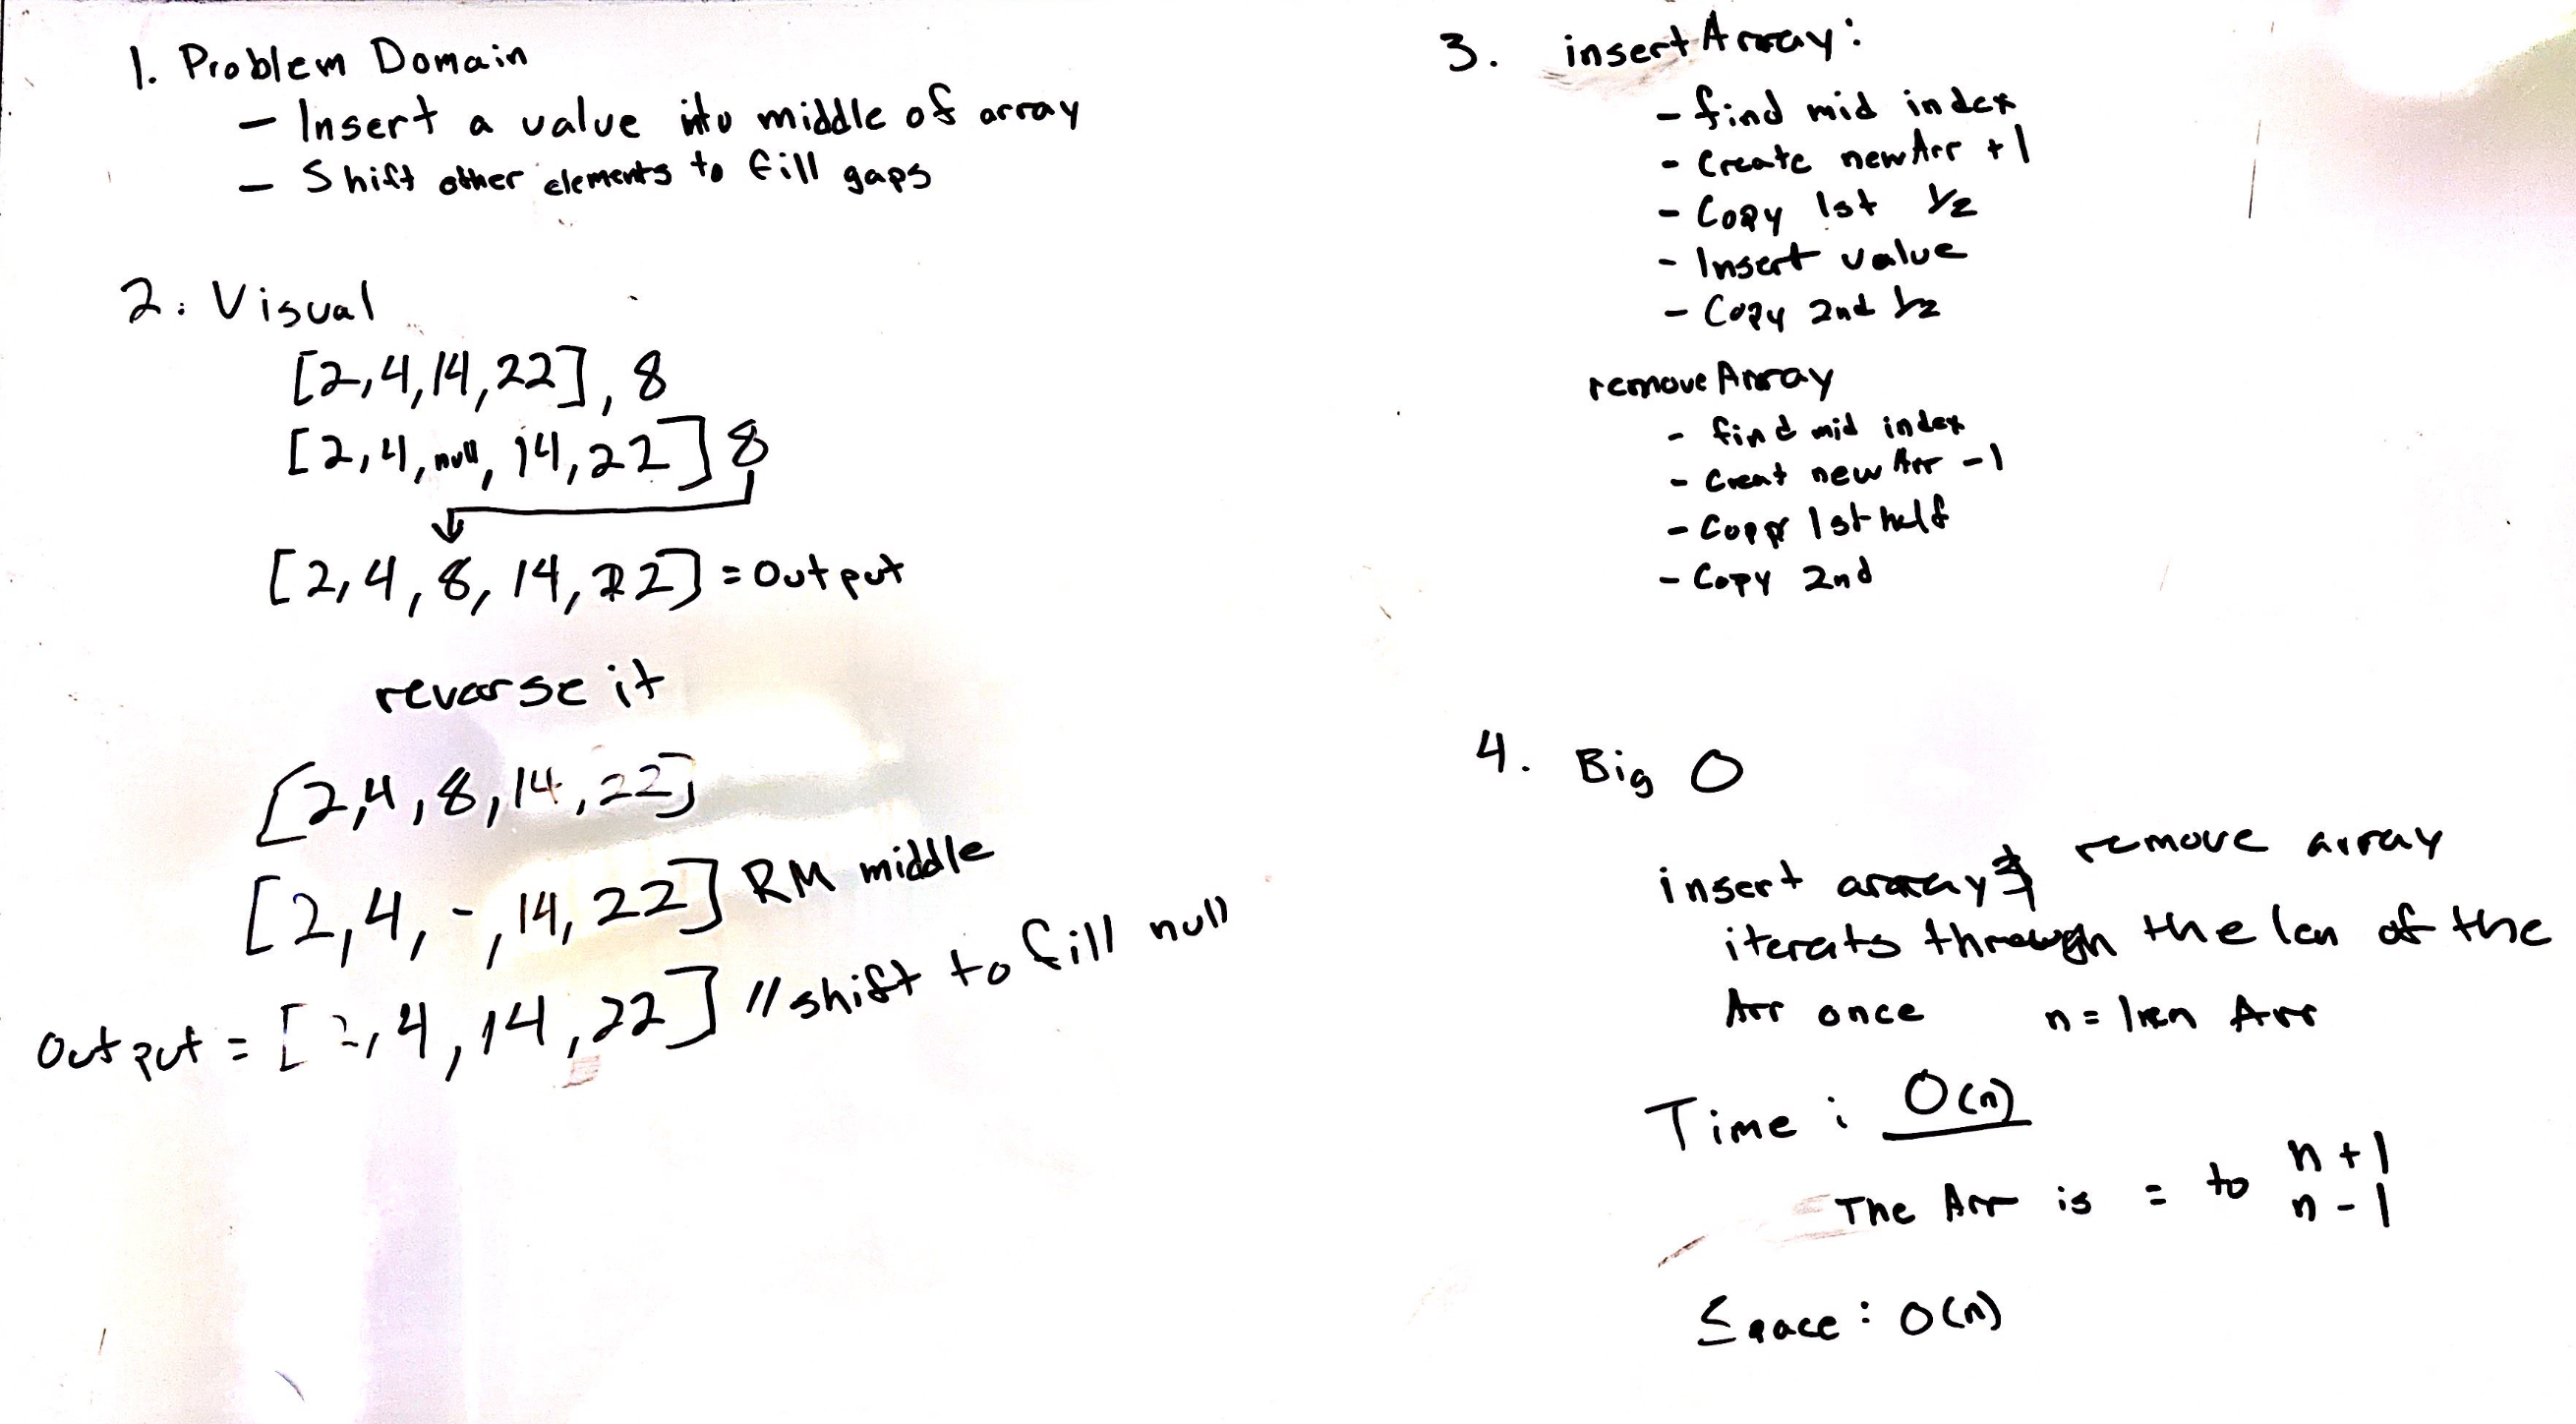 1. Problem Domain
- Insert a value into middle of array
- Shift other elements to fill gaps
2. Visual
[2,4,14,22], 8
[2,4,null,14,22] 8
[2,4,8,14,22] = Output
revarse it
[2,4,8,14,22]
[2,4,-,14,22] RM middle
Output = [2,4,14,22] // shift to fill null
3. insertArray:
- find mid index
- Create newArr +1
- Copy 1st 1/2
- Insert value
- Copy 2nd 1/2
removeArray
- find mid index
- Creat newArr -1
- Copy 1st half
- Copy 2nd
4. Big O
insert array & remove array
iterats through the len of the
Arr once n = len Arr
Time : O(n)
The Arr is = to n+1
n-1
Space : O(n)